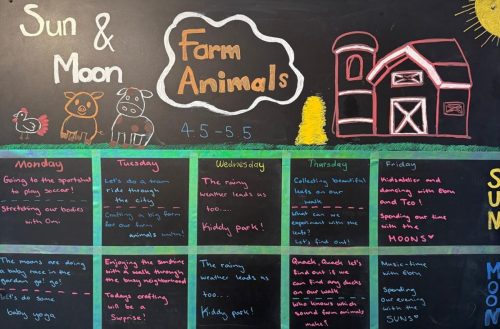 Sun &
Moon
Farm
Animals
4.5-5.5
Monday
Tuesday
Wednesday
Thursday
Friday
Going to the sportshal
to play soccer!
Stretching our bodies
with Omi
Let's do a tram
ride through the
city
Crafting a big farm
for our farm
animals
The rainy
weather leads us
too....
Kiddy park!
Collecting beautiful
leafs on our
walk
What can we
experiment with the
leafs?
Let's find out!
Kidsatelier and
dancing with Ebru
and Teo!
Spending our time
with the
MOONS♥
SUN
The moons are doing
a baby race in the
garden go! go!
Let's do some
baby yoga
Enjoying the sunshine
with a walk through
the busy neighborhood
Todays crafting
will be a
Surprise!
The rainy
weather leads us
too....
Kiddy park!
Quack, Quack let's
find out if we
can find any ducks
on our walk
Who knows which
sound farm animals
make?
Music-time
with Ebru
Spending
our evening
with the
SUNS♥
MOON